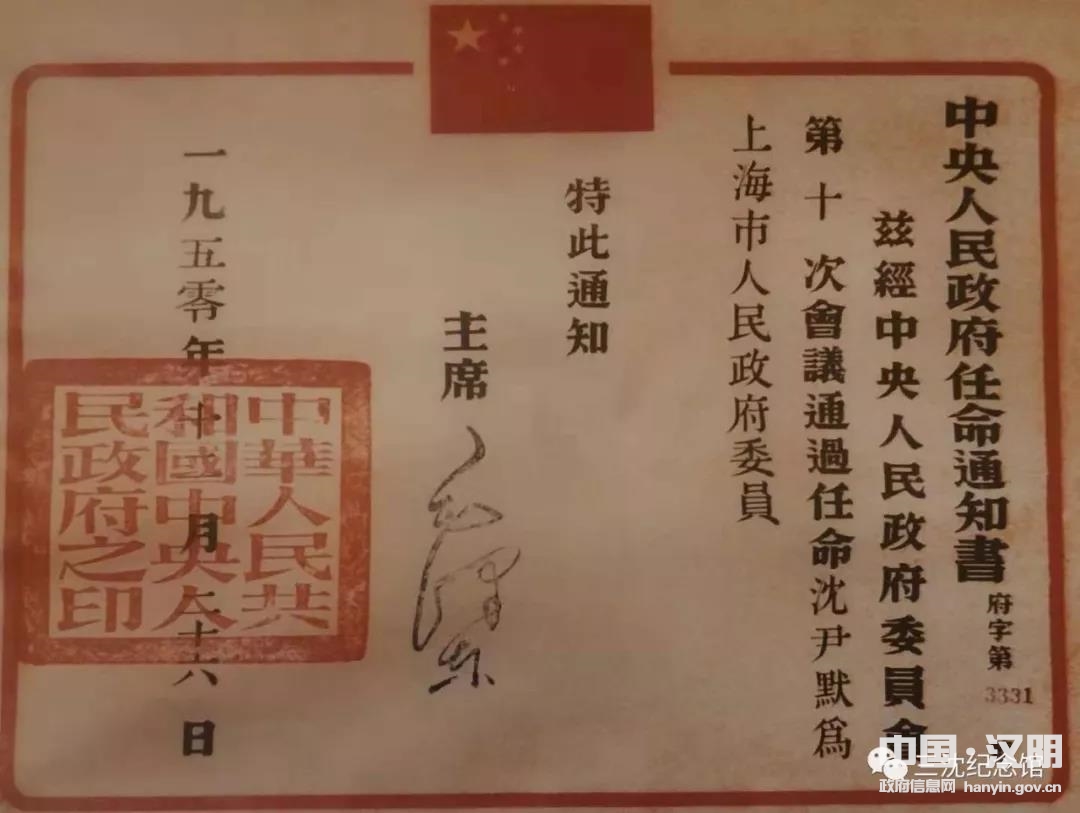 中央人民政府任命通知書
府字第
3331
兹經中央人民政府委員會
第十次會議通過任命沈尹默爲
上海市人民政府委員
特此通知
主席
毛澤东
一九五零年十月二十六日
中華人民共
和國中央人
民政府之印
中国·汉阴
三沈纪念馆
政府信息网 hanyin.gov.cn